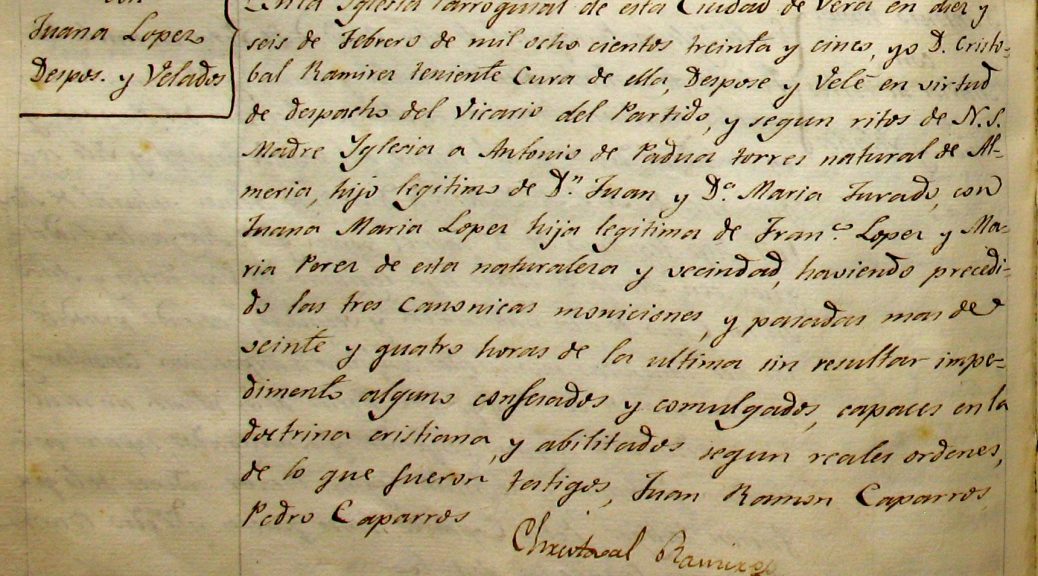 con
Juana Lopez
Despos. y Velados
En la Iglesia Parroquial de esta Ciudad de Vera en diez y
seis de Febrero de mil ocho cientos treinta y cinco, yo D. Cristo-
bal Ramirez teniente Cura de ella, Despose y Velé en virtud
de despacho del Vicario del Partido, y segun ritos de N.S.
Madre Yglesia a Antonio de Padua torres natural de Al-
meria, hijo legitimo de Dn. Juan y Da. Maria Jurado, con
Juana Maria Lopez hija legitima de Franco. Lopez y Ma-
ria Perez de esta naturaleza y vecindad, haviendo precedi-
do las tres canonicas moniciones, y pasadas mas de
veinte y quatro horas de la ultima sin resultar impe-
dimento alguno confesados y comulgados, capaces en la
doctrina cristiana, y abilitados segun reales ordenes,
de lo que fueron testigos, Juan Ramon Caparros
Pedro Caparros
Christoval Ramirez